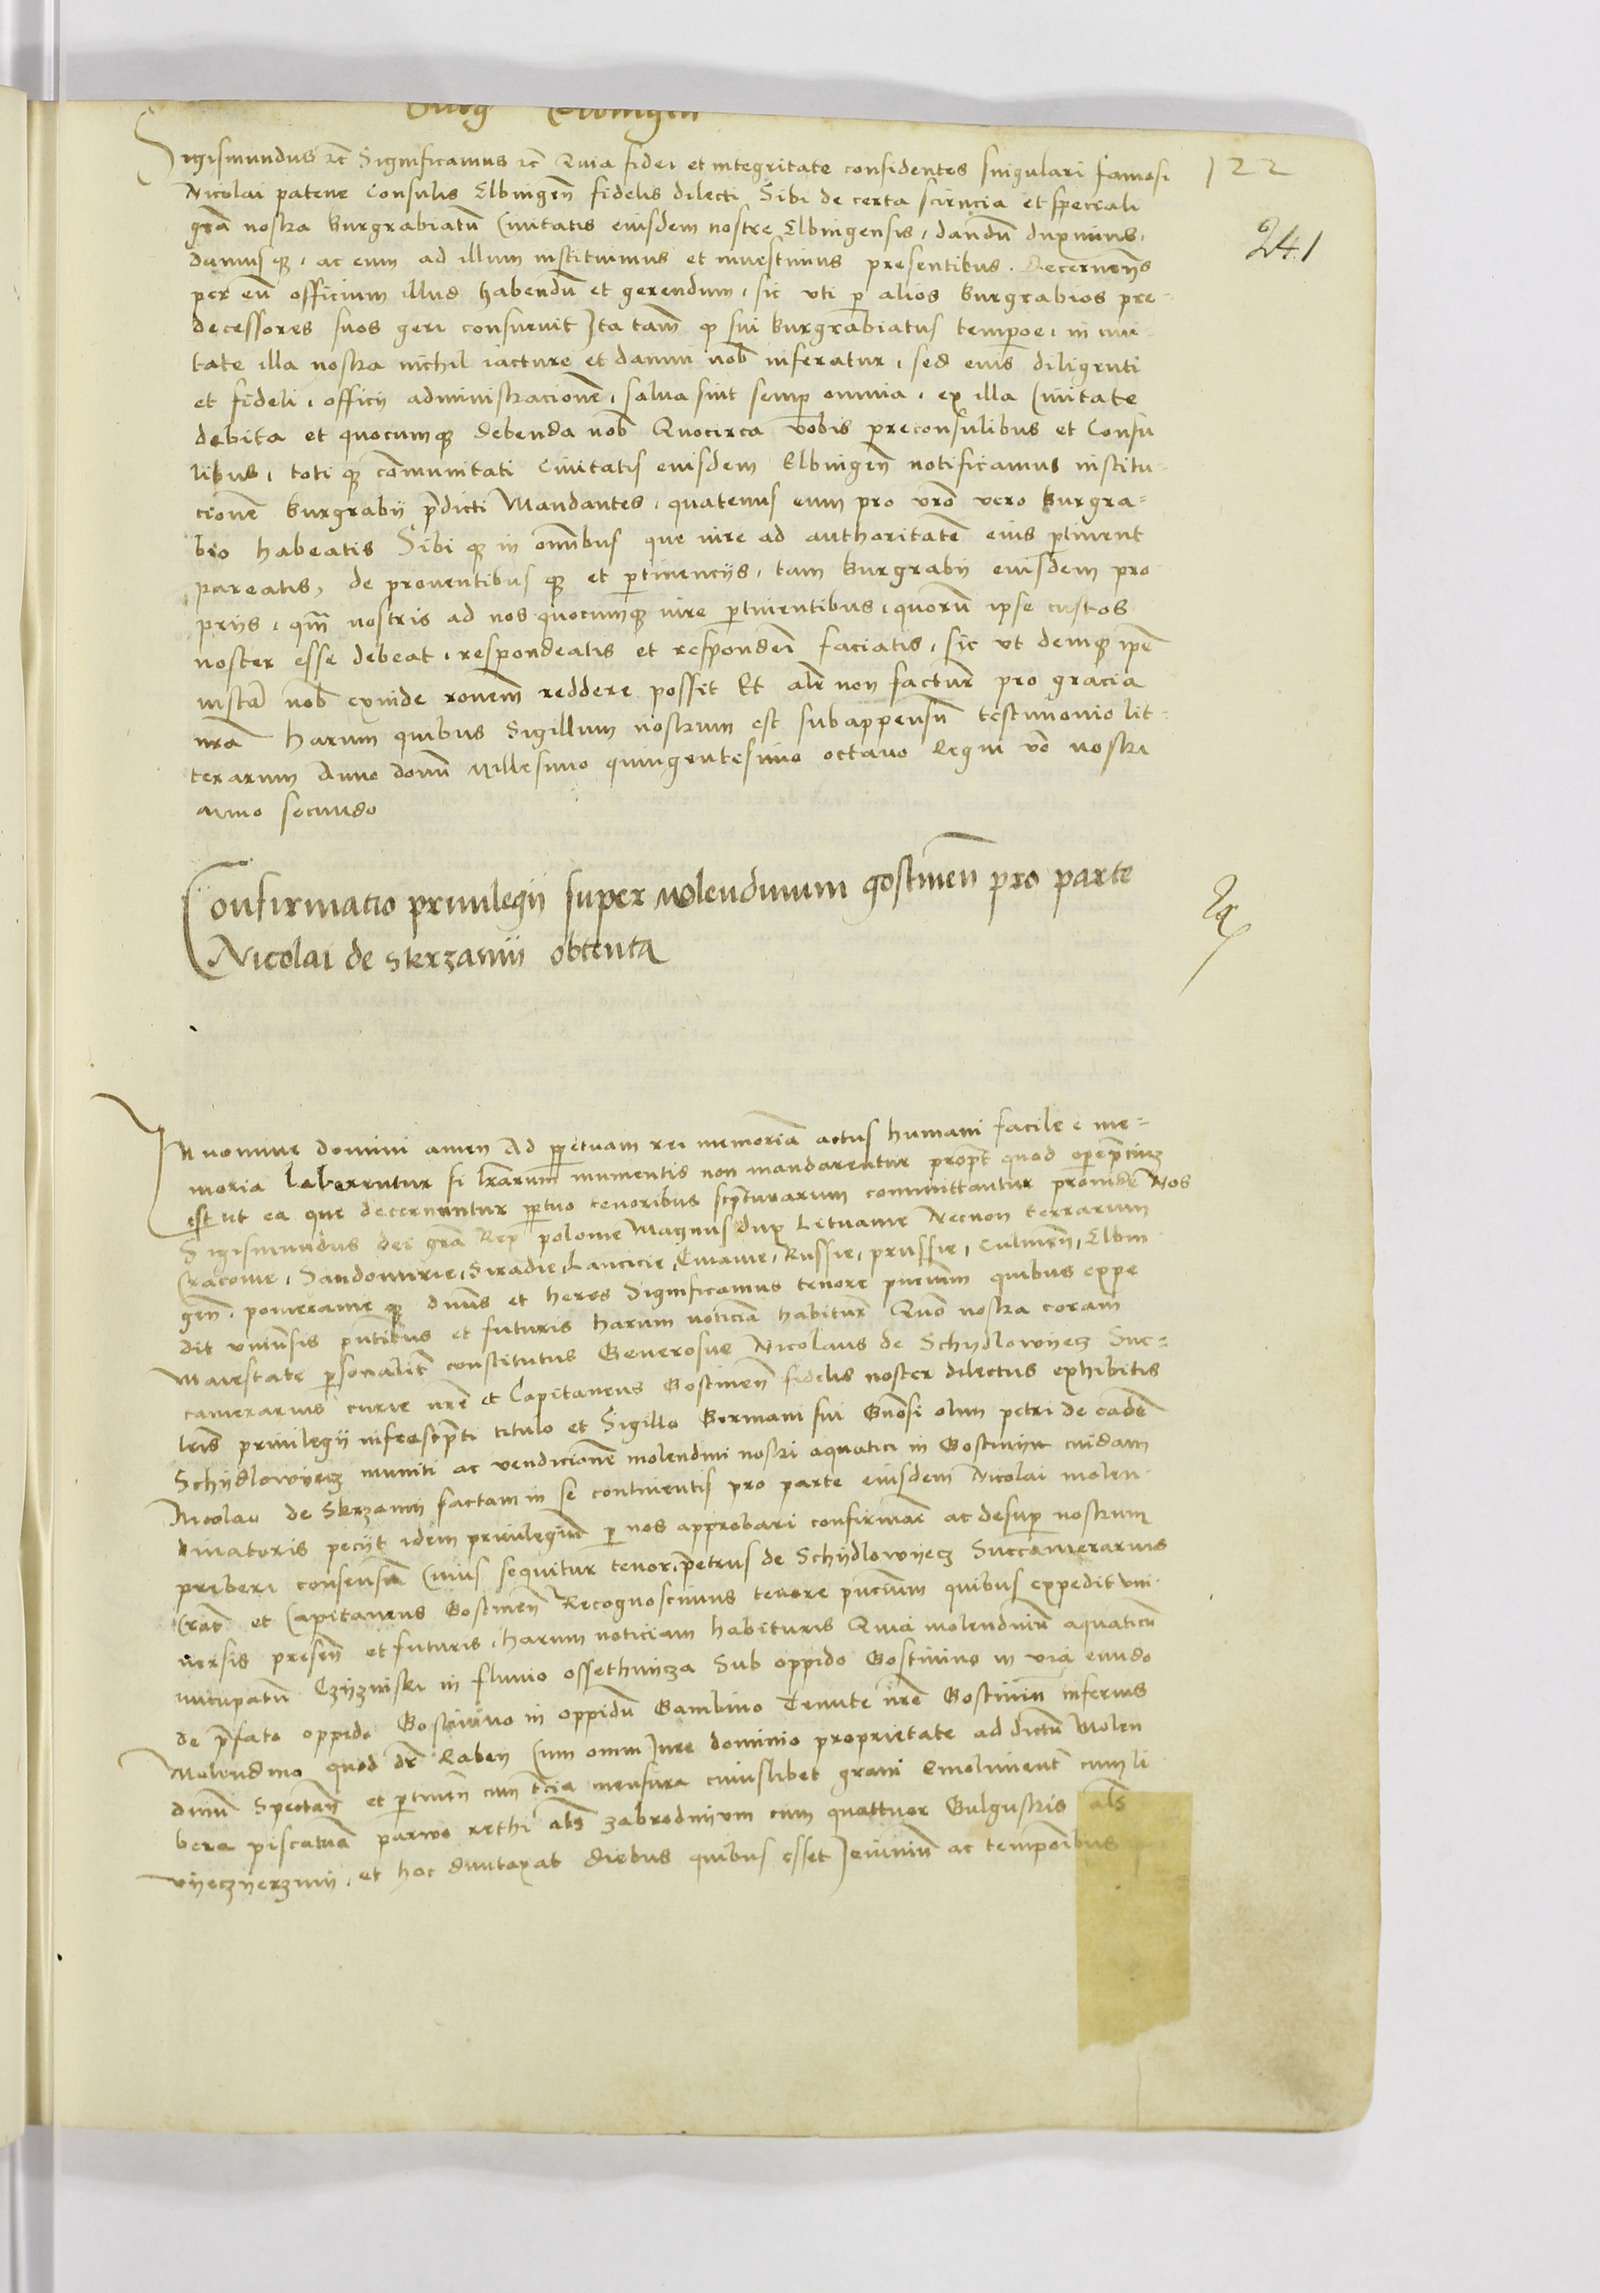 Burg Elbingen
Sigismundus etc Significamus etc Quia fidei et integritate confidentes singulari famosi
122
Nicolai patene Consulis Elbingen̄ fidelis dilecti Sibi de certa sciencia et speciali
grā nostra burgrabiatū Civitatis eiusdem nostre Elbingensis, dandū duximus,
241
damusqꝫ, ac eum ad illum instituimus et investimus presentibus. Decernen̄s
per eū officium illud habendū et gerendum, sic uti ꝑ alios burgrabios pre-
decessores suos geri consuevit Ita tam̄ ꝙ sui burgrabiatus tempore, in civi-
tate illa nostra nichil iacture et damni nob̄ inferatur, sed eius diligenti
et fideli, officij administracione, salva sint semꝑ omnia, ex illa Civitate
debita et quocumqꝫ debenda nob̄ Quocirca vobis preconsulibus et Consu
libus, totiqꝫ cōmunitati Civitatis eiusdem Elbingen̄ notificamus institu-
cionē burgrabij p̄dicti Mandantes, quatenus eum pro vr̄o vero burgra-
bio habeatis Sibiqꝫ in omībus que iure ad authoritatē eius ꝑtinent
pareatis, de proventibusqꝫ et ꝑtinencijs, tam burgrabij eiusdem pro
prijs, qm̄ nostris ad nos quocumqꝫ iure ꝑtinentibus, quorū ipse custos
noster esse debeat, respondeatis et responderi faciatis, sic ut demqꝫ ip̄e
iustā nob̄ exinde ronem̄ reddere possit Et alr̄ non factur̄ pro gracia
nrā Harum quibus Sigillum nostrum est subappensū testimonio lit-
terarum Anno domī Millesimo quingentesimo octavo Regni vō nostri
anno secundo
Confirmatio privilegij super molendinum gostinen̄ pro parte
Nicolai de skrzanij obtenta
In nomine domini amen Ad ꝑpetuam rei memoriā actus humani facile e me-
moria laberentur si lr̄arum mumentis non mandarentur propt̄ quod
est ut ea que decernuntur ꝑpetuo tenoribus scripturarum committantur proinde Nos
Sigismundus dei grā Rex polonie Magnus dux Lituanie Necnon terrarum
Cracovie, Sandomirie, Siradie, Lancicie, Cuiavie, Russie, prussie, Culmen̄, Elbin
gen̄, pomeranieqꝫ dn̄us et heres Significamus tenore pn̄cium quibus expe
dit universis pn̄tibus et futuris harum noticiā habitur̄ Quō nostra coram
Maiestate ꝑsonalit̄ constitutus Generosus Nicolaus de Schydlowyecz Suc-
camerarius curie nr̄e et Capitaneus Gostinen̄ fidelis noster dilectus exhibitis
lr̄is privilegij infrascripti titulo et Sigillo Germani sui Gn̄osi olim petri de eadē
Schydlowyecz muniti ac vendicionē molendini nostri aquatici in Gostinijn cuidam
Nicolao de Skrzanij factam in se continentis pro parte eiusdem Nicolai molen
dinatoris pecijt idem privilegiū ꝑ nos approbari confirmari ac desuꝑ nostrum
preberi consensū Cuius sequitur tenor, petrus de Schydlowyecz Succamerarius
Crac̄ et Capitaneus Gostinen̄ Recognoscimus tenore pn̄cium quibus expedit uni
versis presen̄ et futuris, harum noticiam habituris Quia molendinū aquaticū
nuncupatū Czyzniski in fluvio ossethnicza Sub oppido Gostinino in via eundo
de p̄fato oppido Gostinino in oppidū Gambino Tenute nr̄e Gostinin̄ inferius
Molendino quod dr̄ Raben Cum omni Iure dominio proprietate ad dictū Molen
dinū Spectan̄ et ꝑtinen̄ cum t̄cia mensura cuiuslibet grani Emoliment̄ cum li
bera piscatura parvo rethi al̄s zabrodnijum cum quattuor Gulgustris al̄s
vyeczyerzmij, et hoc duntaxat diebus quibus esset Ieiuniū ac temporibus